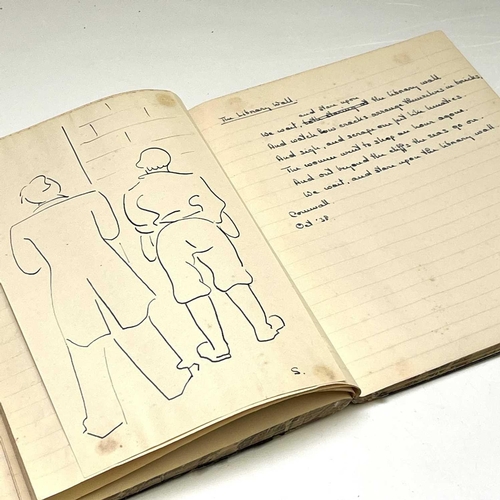 The Library Wall
and stare upon
We wait, the library wall
And watch how cracks arrange themselves in bricks.
And sigh, and scrape our feet like lunatics
The women went to shop an hour agone.
And out beyond the cliffs the seas go on
We wait, and stare upon the library wall
Cornwall
Oct '38
S.